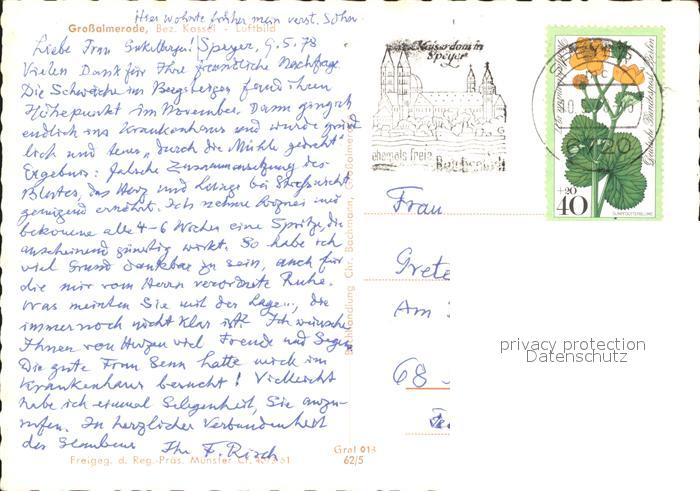 Hier wohnte früher mein verst. Sohn
Großalmerode, Bez. Kassel - Luftbild
Liebe Frau Speyer, 9.5.78
Vielen Dank für Ihre freundliche Nachfrage.
Die Schwäche im fand ihren
Höhepunkt im November. Dann ging ich
endlich ins Krankenhaus und wurde gründ
lich und "durch die Mühle gedreht".
Ergebnis: falsche Zusammensetzung des
Blutes, das Herz und Lunge bei nicht
genügend ernährt. Ich nehme und
bekomme alle 4-6 Wochen eine Spritze, die
anscheinend günstig wirkt. So habe ich
viel Grund dankbar zu sein, auch für
die mir vom Herrn verordnete Ruhe.
Was meinten Sie mit der Lage..., die
immer noch nicht klar ist? Ich wünsche
Ihnen von Herzen viel Freude und Segen
Die gute Frau Senn hatte mich im
Krankenhaus besucht! Vielleicht
habe ich einmal Gelegenheit, Sie anzu-
rufen. In herzlicher Verbundenheit
des Glaubens Ihr F. Risch
Freigeg. d. Reg.-Präs. Münster
Graf 013
62/5
Buchhandlung Chr. Bachmann, Großalmerode
Kaiserdom in
Speyer
ehemals freie
6720
+20
40
SUMPFDOTTERBLUME
Deutsche Bundespost Berlin
Frau
Grete
Am
68
privacy protection
Datenschutz